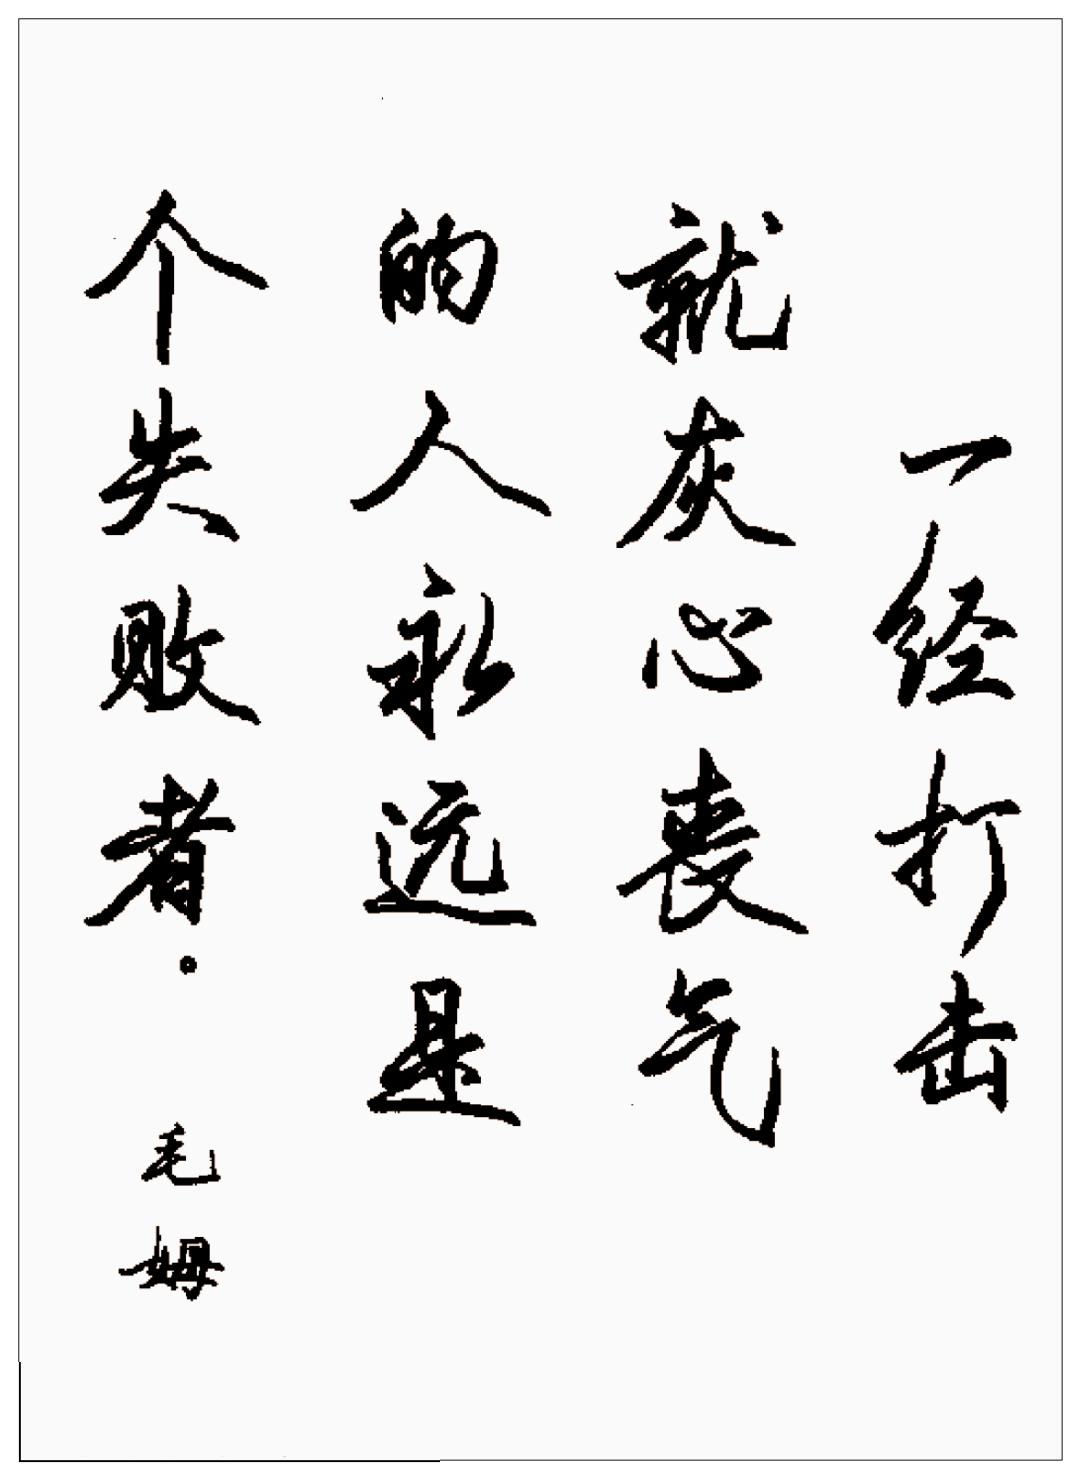 一经打击
就灰心丧气
的人永远是
个失败者。
毛姆